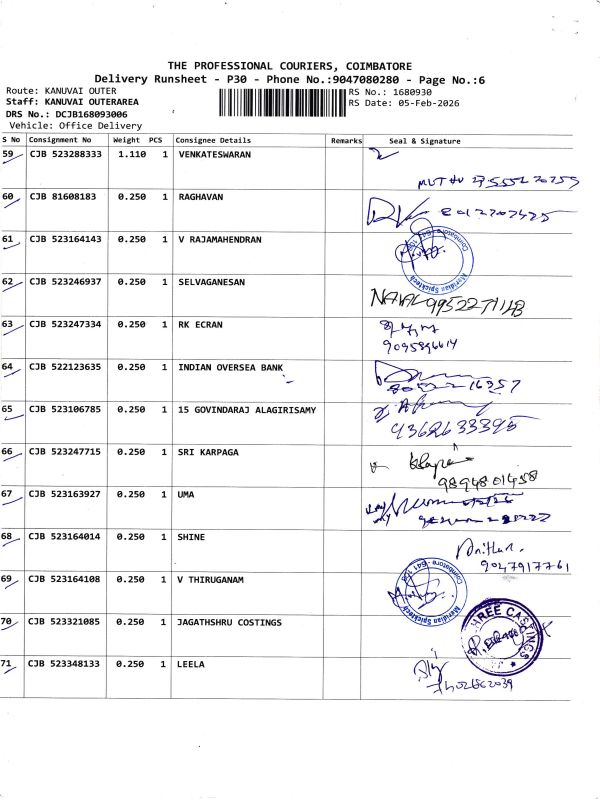 THE PROFESSIONAL COURIERS, COIMBATORE
Delivery Runsheet - P30 - Phone No.:9047080280 - Page No.:6
Route: KANUVAI OUTER
Staff: KANUVAI OUTERAREA
DRS No.: DCJB168093006
Vehicle: Office Delivery
RS No.: 1680930
RS Date: 05-Feb-2026
S No Consignment No Weight PCS Consignee Details Remarks Seal & Signature
59 CJB 523288333 1.110 1 VENKATESWARAN
60 CJB 81608183 0.250 1 RAGHAVAN
61 CJB 523164143 0.250 1 V RAJAMAHENDRAN
Coimbatore - 641 108 Meridian Spicktech
62 CJB 523246937 0.250 1 SELVAGANESAN
63 CJB 523247334 0.250 1 RK ECRAN
64 CJB 522123635 0.250 1 INDIAN OVERSEA BANK
65 CJB 523106785 0.250 1 15 GOVINDARAJ ALAGIRISAMY
9362633395
66 CJB 523247715 0.250 1 SRI KARPAGA
9894801458
67 CJB 523163927 0.250 1 UMA
68 CJB 523164014 0.250 1 SHINE
9047917761
69 CJB 523164108 0.250 1 V THIRUGANAM
Coimbatore - 641 108 Meridian Spicktech
70 CJB 523321085 0.250 1 JAGATHSHRU COSTINGS
71 CJB 523348133 0.250 1 LEELA